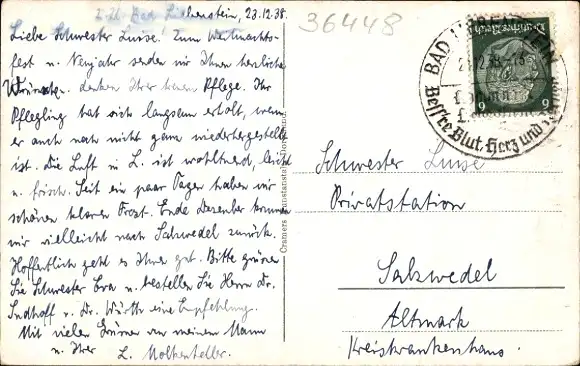 z. Zt. Bad Liebenstein, 23.12.38.
Liebe Schwester Luise! Zum Weihnachts-
fest u. Neujahr senden wir Ihnen herzliche
Wünsche u. denken Ihrer treuen Pflege. Ihr
Pflegling hat sich langsam erholt, wenn
er auch noch nicht ganz wiederhergestellt
ist. Die Luft in L. ist wohltuend, leicht
u. frisch. Seit ein paar Tagen haben wir
schönen klaren Frost. Ende Dezember kommen
wir vielleicht nach Salzwedel zurück.
Hoffentlich geht es Ihnen gut. Bitte grüssen
Sie Schwester Eva u. bestellen Sie Herrn Dr.
u. Dr. eine Empfehlung.
Mit vielen Grüssen von meinem Mann
u. Ihrer L. Molkenteller.
36448
BAD LIEBENSTEIN
23.12.38
Bess're Blut, Herz und
9 9
Cramers Kunstanstalt, Dortmund
Schwester Luise
Privatstation
Salzwedel
Altmark
Kreiskrankenhaus.